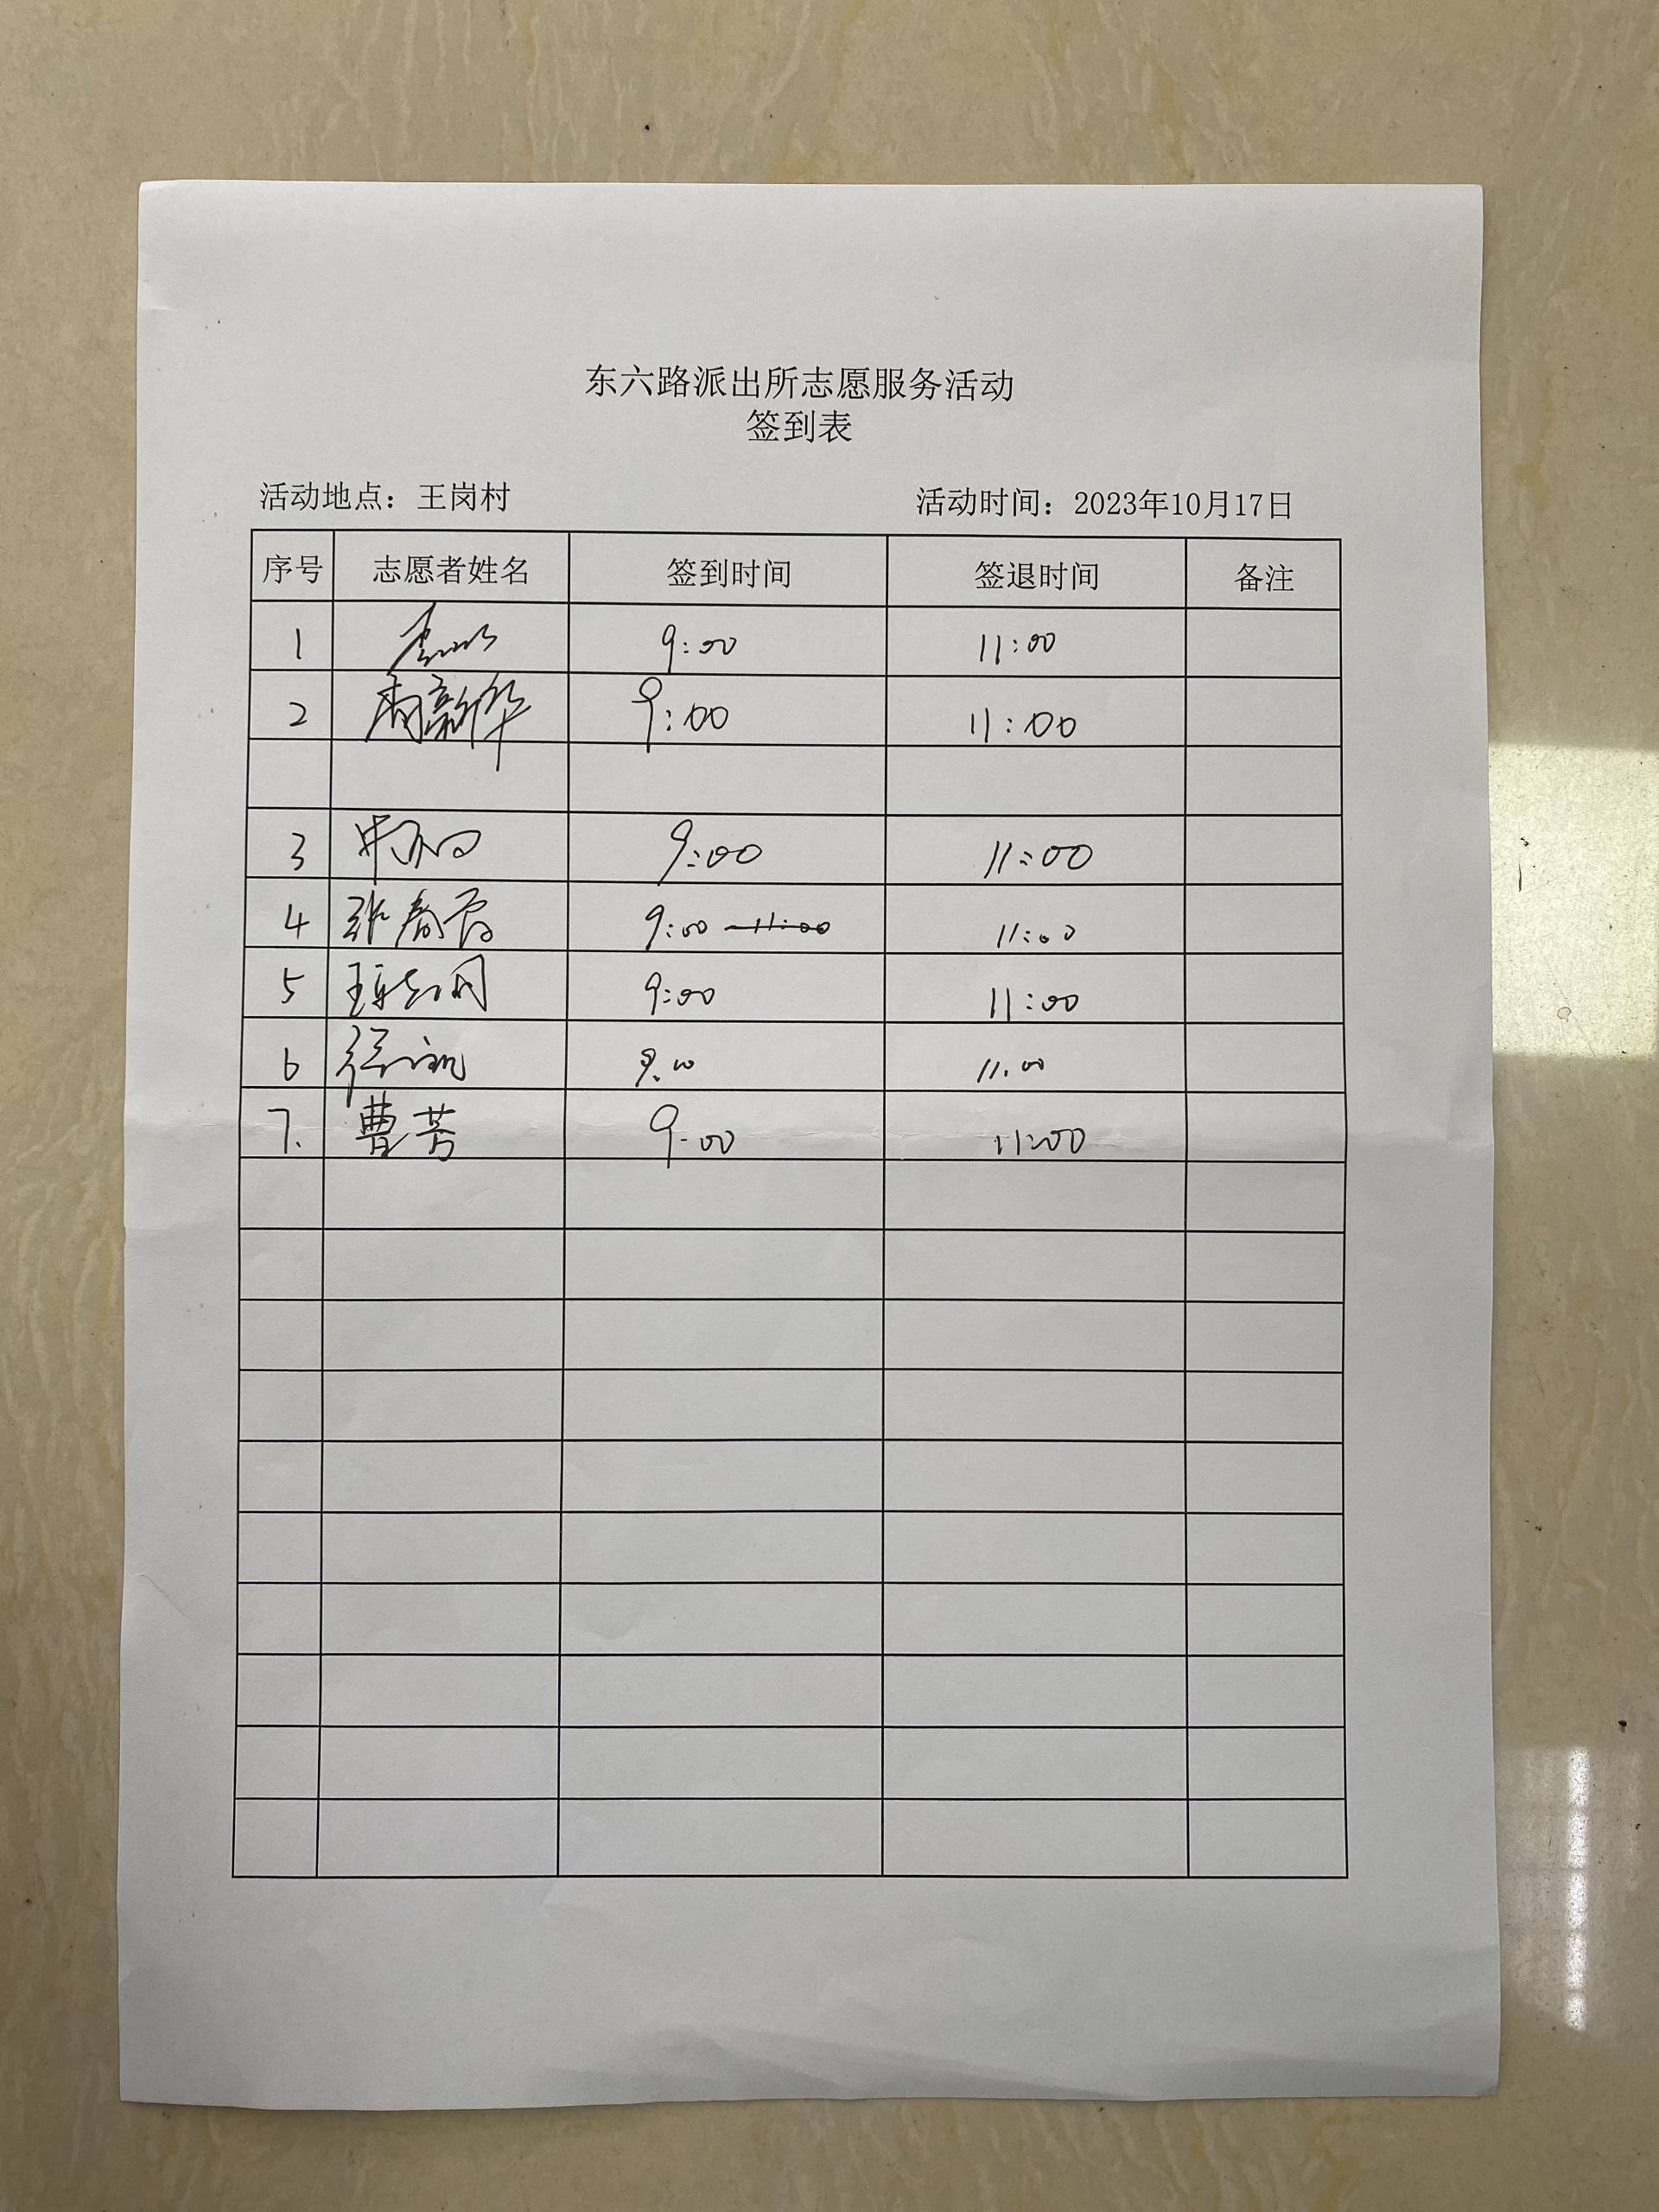 东六路派出所志愿服务活动
签到表
活动地点：王岗村 活动时间：2023年10月17日
序号 志愿者姓名 签到时间 签退时间 备注
1 9:00 11:00
2 周新华 9:00 11:00
3 9:00 11:00
4 张春霞 9:00 11:00 11:00
5 9:00 11:00
6 9.00 11.00
7. 曹芳 9:00 11:00